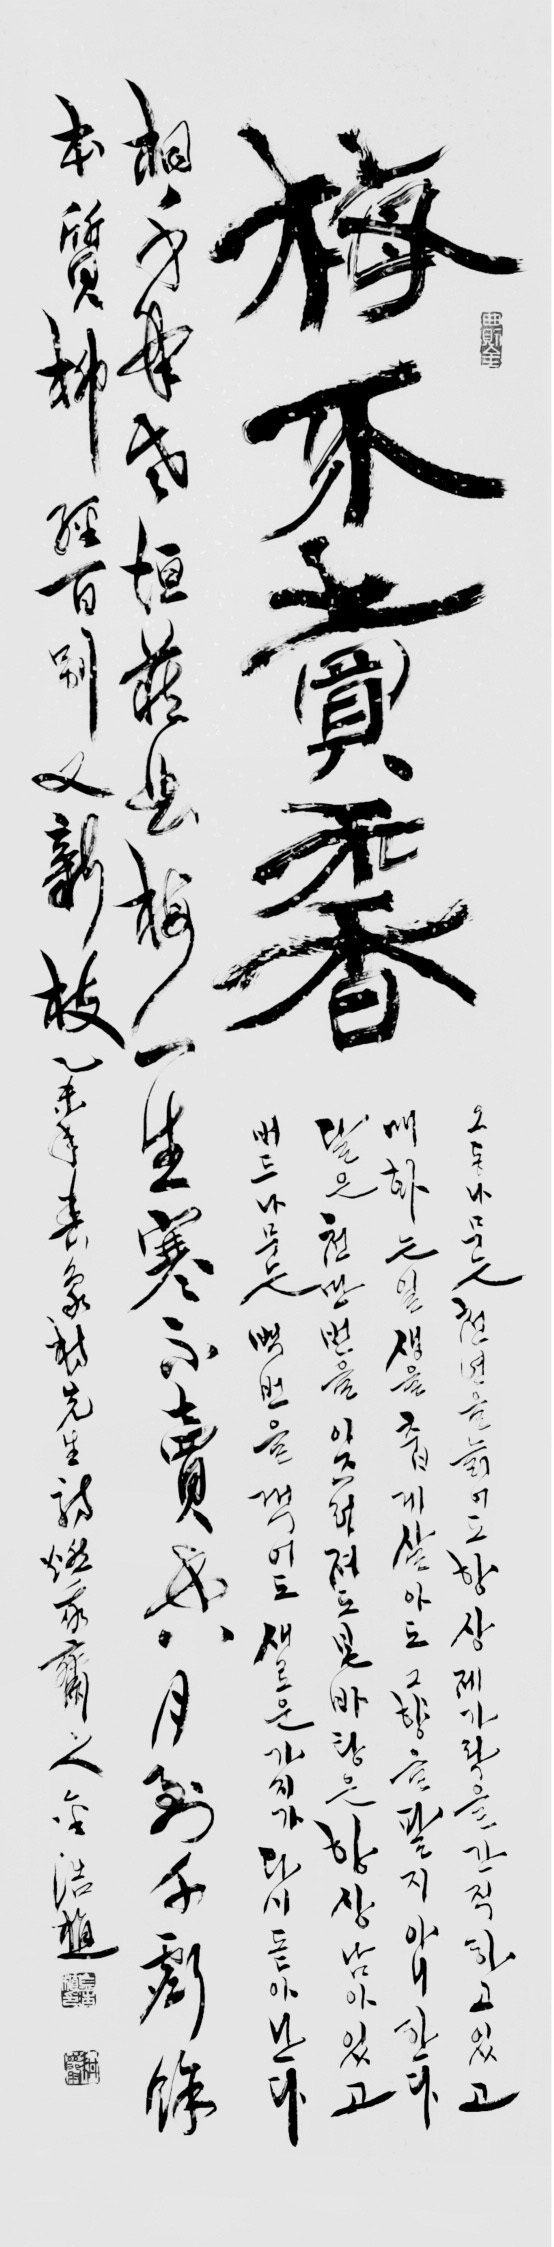 梅不賣香
오동나무는 천년을 늙어도 항상 제가락을 간직하고 있고
매화는 일생을 춥게 살아도 그 향을 팔지 아니한다
달은 천만번을 이즈러져도 본바탕은 항상 남아있고
버드나무는 백번을 꺾어도 새로운 가지가 다시 돋아난다
桐千年老恒藏曲梅一生寒不賣香月到千虧餘
本質柳經百別又新枝 乙未年春象村先生詩 齋人 金浩植